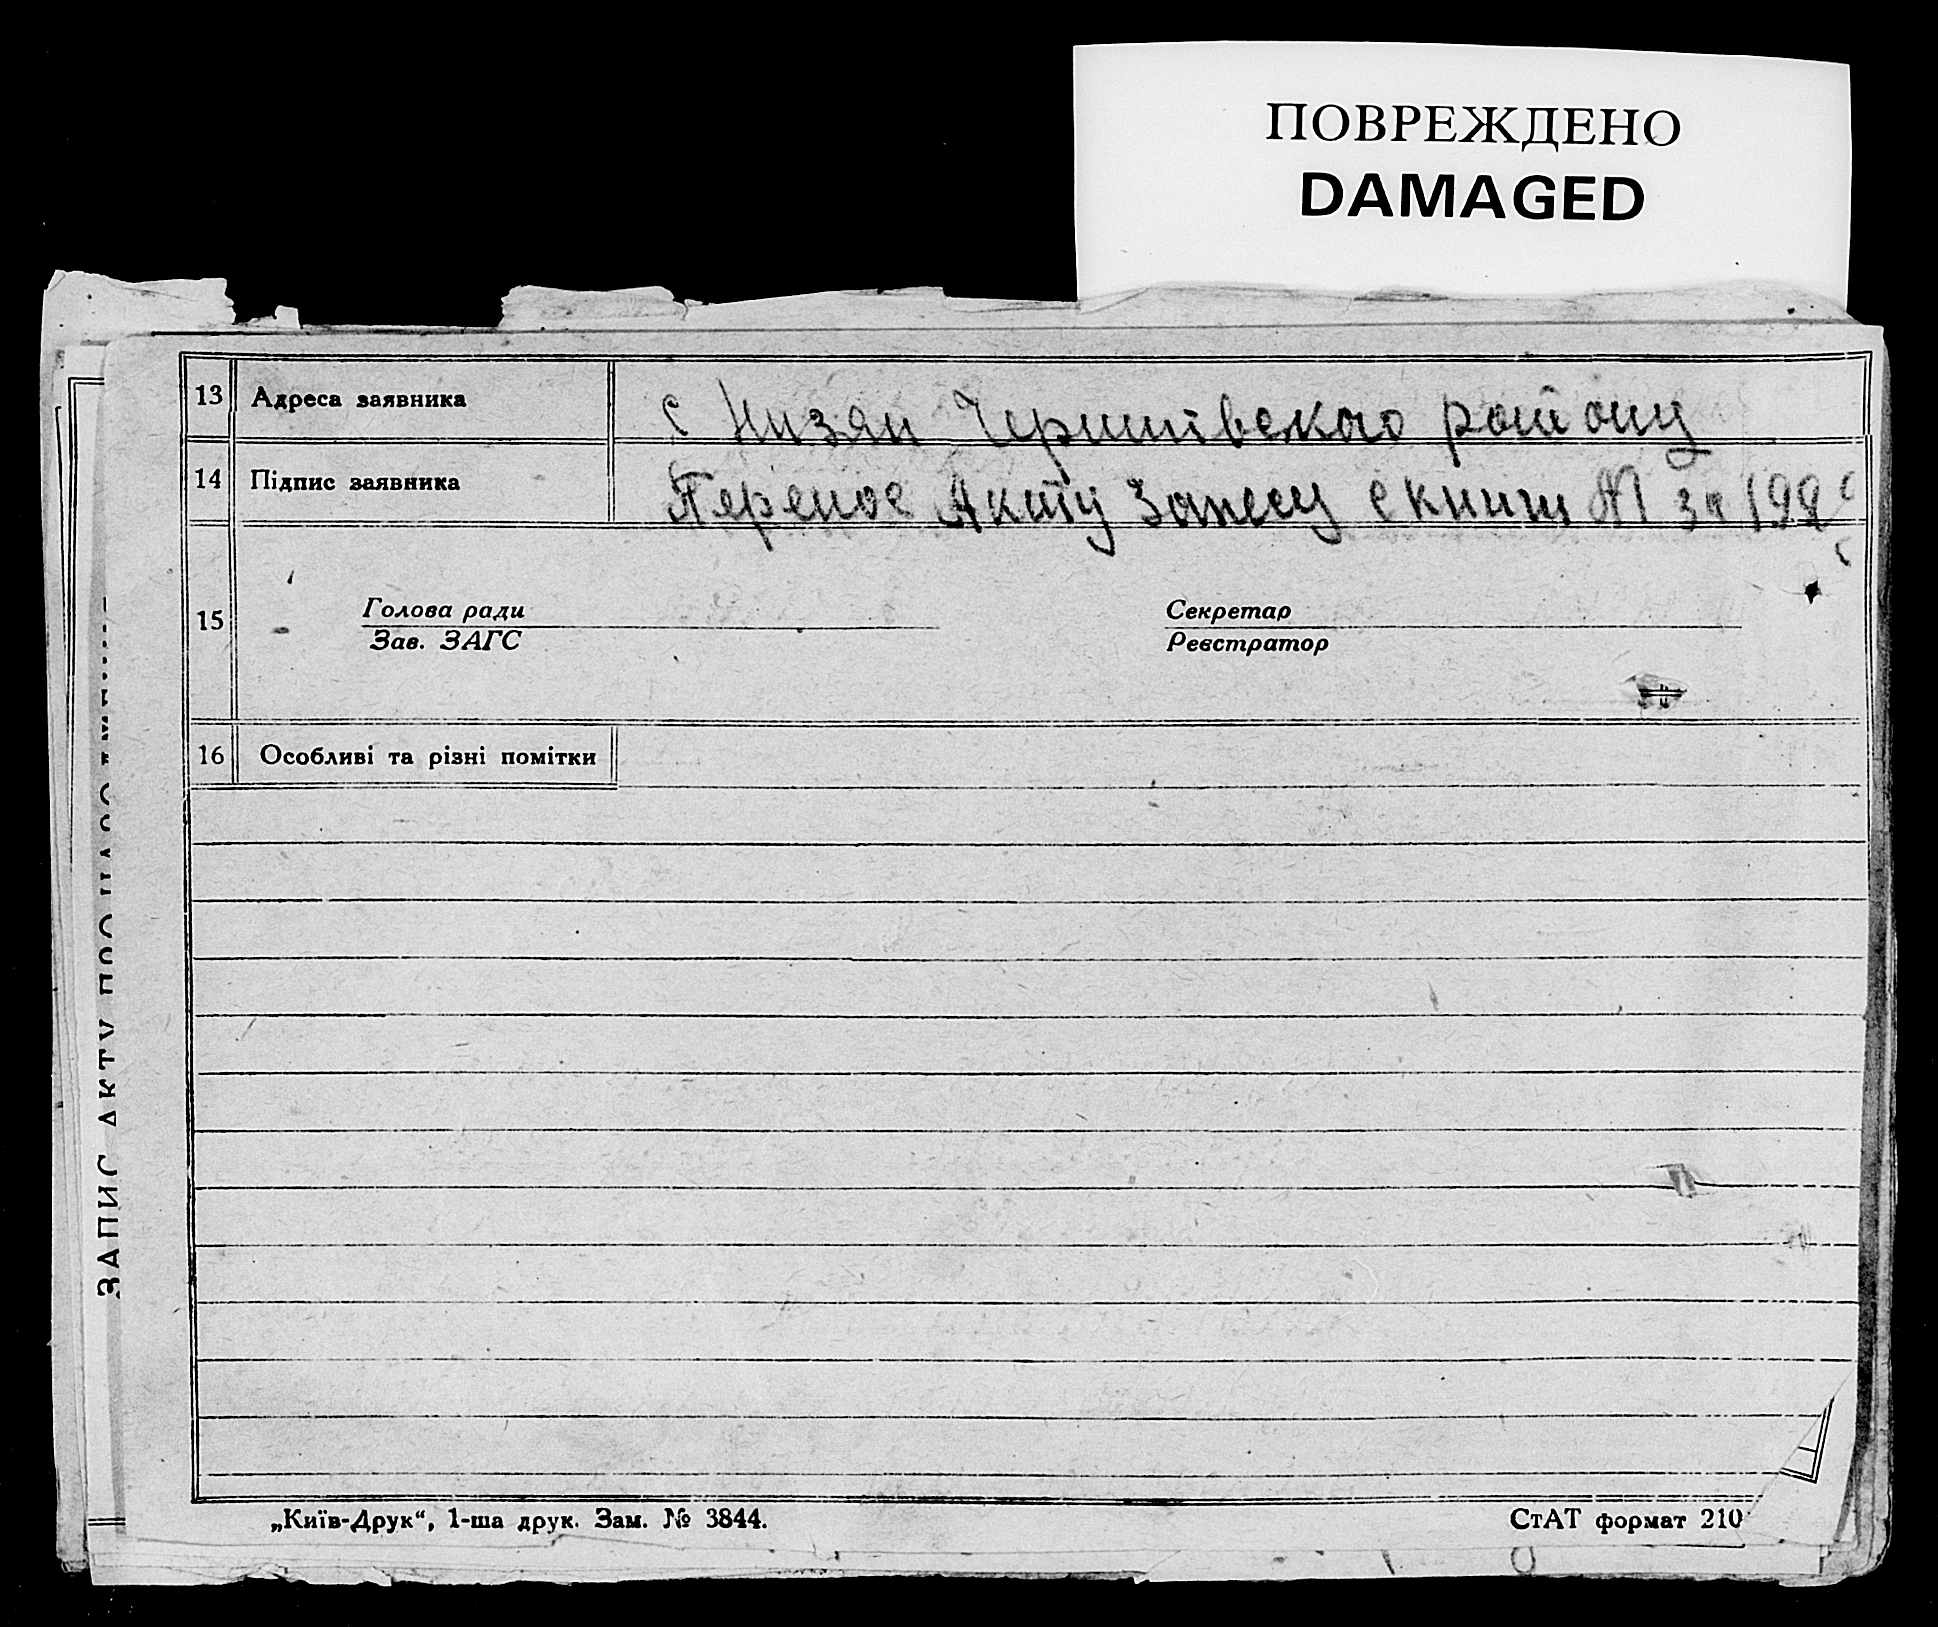 ПОВРЕЖДЕНО
DAMAGED
13 Адреса заявника с Низян району
14 Підпис заявника Перенос Акту с книги № за
15 Голова ради Секретар
Зав. ЗАГС Реєстратор
16 Особливі та різні помітки
ЗАПИС АКТУ ПРО
„Київ-Друк“, 1-ша друк. Зам. № 3844. СтАТ формат 210